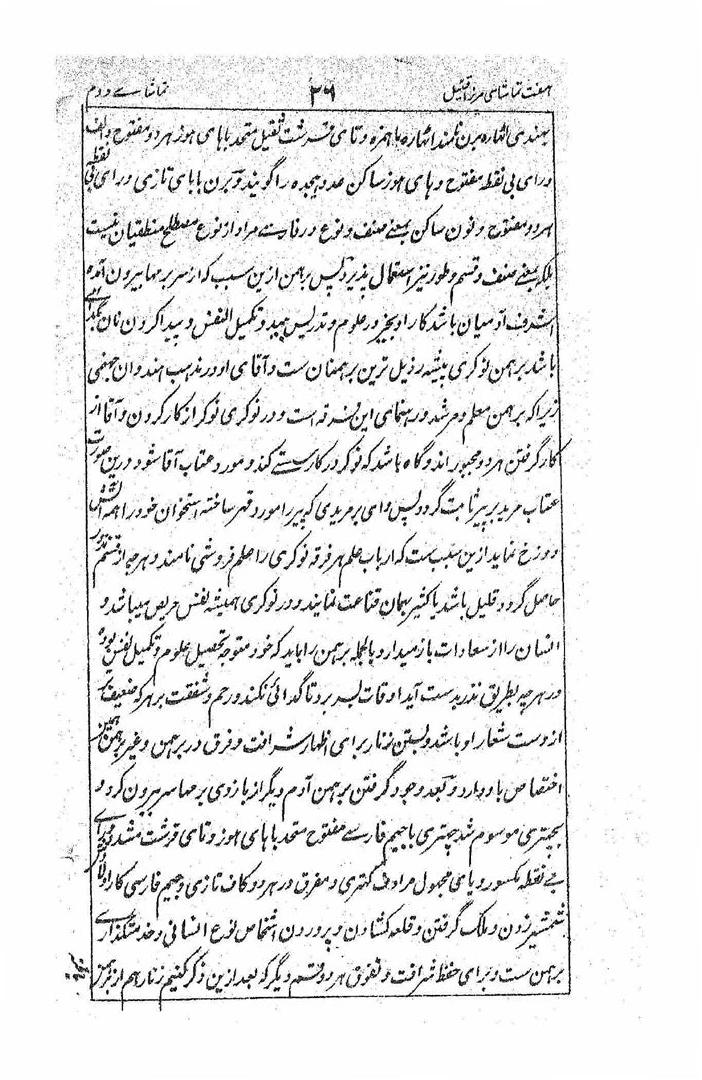 هفت تماشای مرزا قتیل ۲۶ تماشاے دوم
بهندی اٹهاره برن نامند اٹهاره با همزه و تای قرشت ثقیل متحد باهای هوز هر دو مفتوح و الف
و رای بی نقطه مفتوح و های هوز ساکن عدد هیجده را گویند و برن با بای تازی و رای بی نقطه
هر دو مفتوح و نون ساکن بمعنے صنف و نوع در فارسے مراد از نوع مصطلح منطقیان نیست
بلکه بمعنے صنف و قسم و طور نیز استعمال پذیرد پس برهمن ازین سبب که از سر برمها بیرون آمده
اشرف آدمیان باشد کار او بجز در علوم و تدریس بید و تکمیل النفس و پیدا کردن نان بگدائے
باشد برهمن نوکری پیشه رذیل ترین برهمنان ست و آقای او در مذهب هندوان جهنمی
زیرا که برهمن معلم و مرشد و رهنمای این فرقه است و در نوکری نوکر از کار کردن و آقا از
کار گرفتن هر دو مجبور اند و گاه باشد که نوکر در کار سستے کند و مورد عتاب آقا شود درین صورت
عتاب مرید بر پیر ثابت گردد پس وای بر مریدی که پیر را مورد قهر ساخته استخوان خود را همه آتش
دوزخ نماید ازین سبب ست که ارباب علم هر فرقه نوکری را علم فروشی نامند و هرچه از قسم نذور
حاصل گردد قلیل باشد یا کثیر بهمان قناعت نمایند و در نوکری همیشه نفس حریص میباشد و
انسان را از سعادات باز میدارد بالجمله برهمن را باید که خود متوجه تحصیل علوم و تکمیل نفس بوده
و هرچه بطریق نذر بدست آید اوقات بسر برد تا گدائی نکند و رحم و شفقت بر هر که ضعیف تر
از وست شعار او باشد و بستن زنار برای اظهار شرافت و فرق در برهمن و غیر برهمن همین
اختصاص با و دارد و بعد وجود گرفتن برهمن آدم دیگر از بازوی برمها سر بیرون کرد و
بچهتری موسوم شد چهتری با جیم فارسے مفتوح متحد با های هوز و تای قرشت مشدد و رای
بے نقطه مکسور و یای مجهول مرادف کهتری و مفرق در هر دو کاف تازی و جیم فارسی کار او
شمشیر زدن و ملک گرفتن و قلعه کشادن و پروردن اشخاص نوع انسانی و خدمتگذاری
برهمن ست و برای حفظ شرافت و تفوق هر دو قسم دیگر که بعد ازین ذکر کنیم زنار هم از برهمن